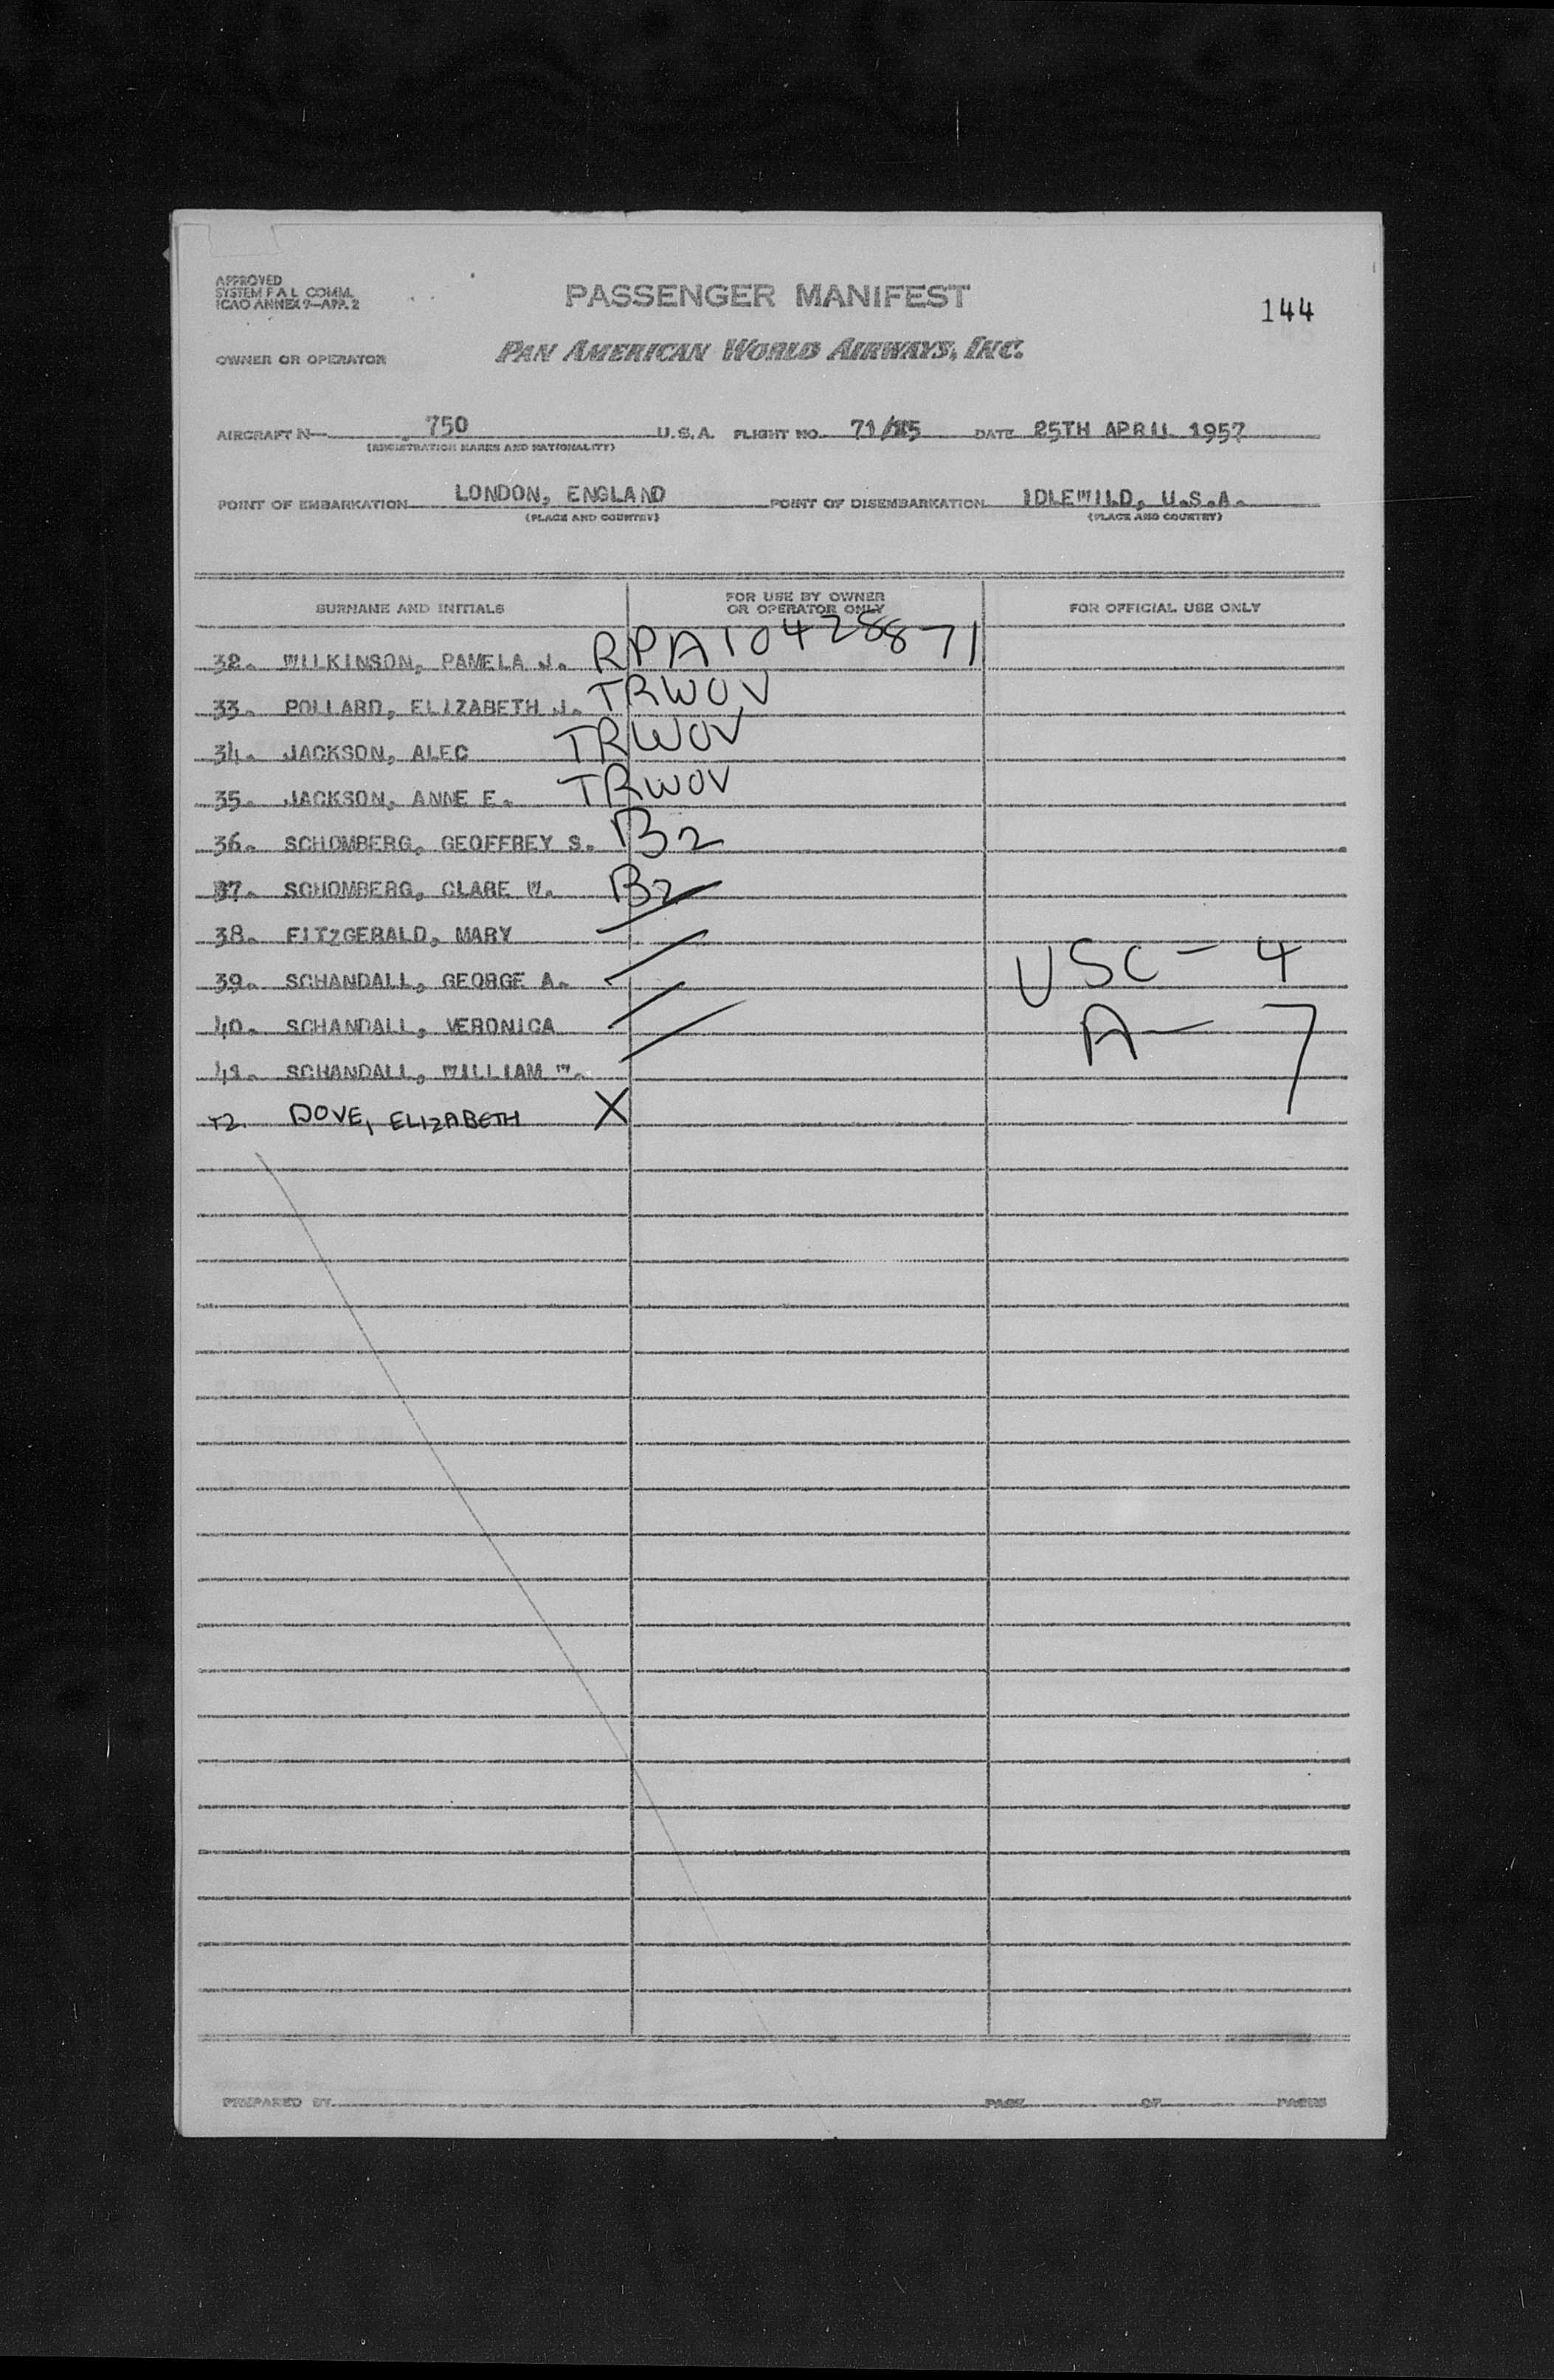 APPROVED
SYSTEM F A L COMM.
ICAO ANNEX 9—APP. 2
PASSENGER MANIFEST
144
OWNER OR OPERATOR PAN AMERICAN WORLD AIRWAYS, INC.
AIRCRAFT N 750 U.S.A. FLIGHT NO. 71/25 DATE 25TH APRIL 1957
(REGISTRATION MARKS AND NATIONALITY)
POINT OF EMBARKATION LONDON, ENGLAND POINT OF DISEMBARKATION IDLEWILD, U.S.A.
(PLACE AND COUNTRY) (PLACE AND COUNTRY)
SURNAME AND INITIALS FOR USE BY OWNER OR OPERATOR ONLY FOR OFFICIAL USE ONLY
32. WILKINSON, PAMELA J. RPA10428871
33. POLLARD, ELIZABETH J. TRWOV
34. JACKSON, ALEC TRWOV
35. JACKSON, ANNE E. TRWOV
36. SCHOMBERG, GEOFFREY S. B2
37. SCHOMBERG, CLARE W. B2
38. FITZGERALD, MARY
39. SCHANDALL, GEORGE A. USC - 4
40. SCHANDALL, VERONICA A - 7
41. SCHANDALL, WILLIAM W.
42. DOVE, ELIZABETH X
PREPARED BY PAGE OF PAGES